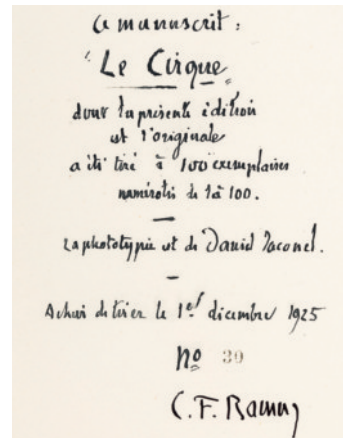 Ce manuscrit :
"Le Cirque"
dont la présente édition
est l'originale
a été tiré à 100 exemplaires
numérotés de 1 à 100.
La phototypie est de Daniel Jacomet.
Achevé de tirer le 1er décembre 1925
No 39
C. F. Ramuz